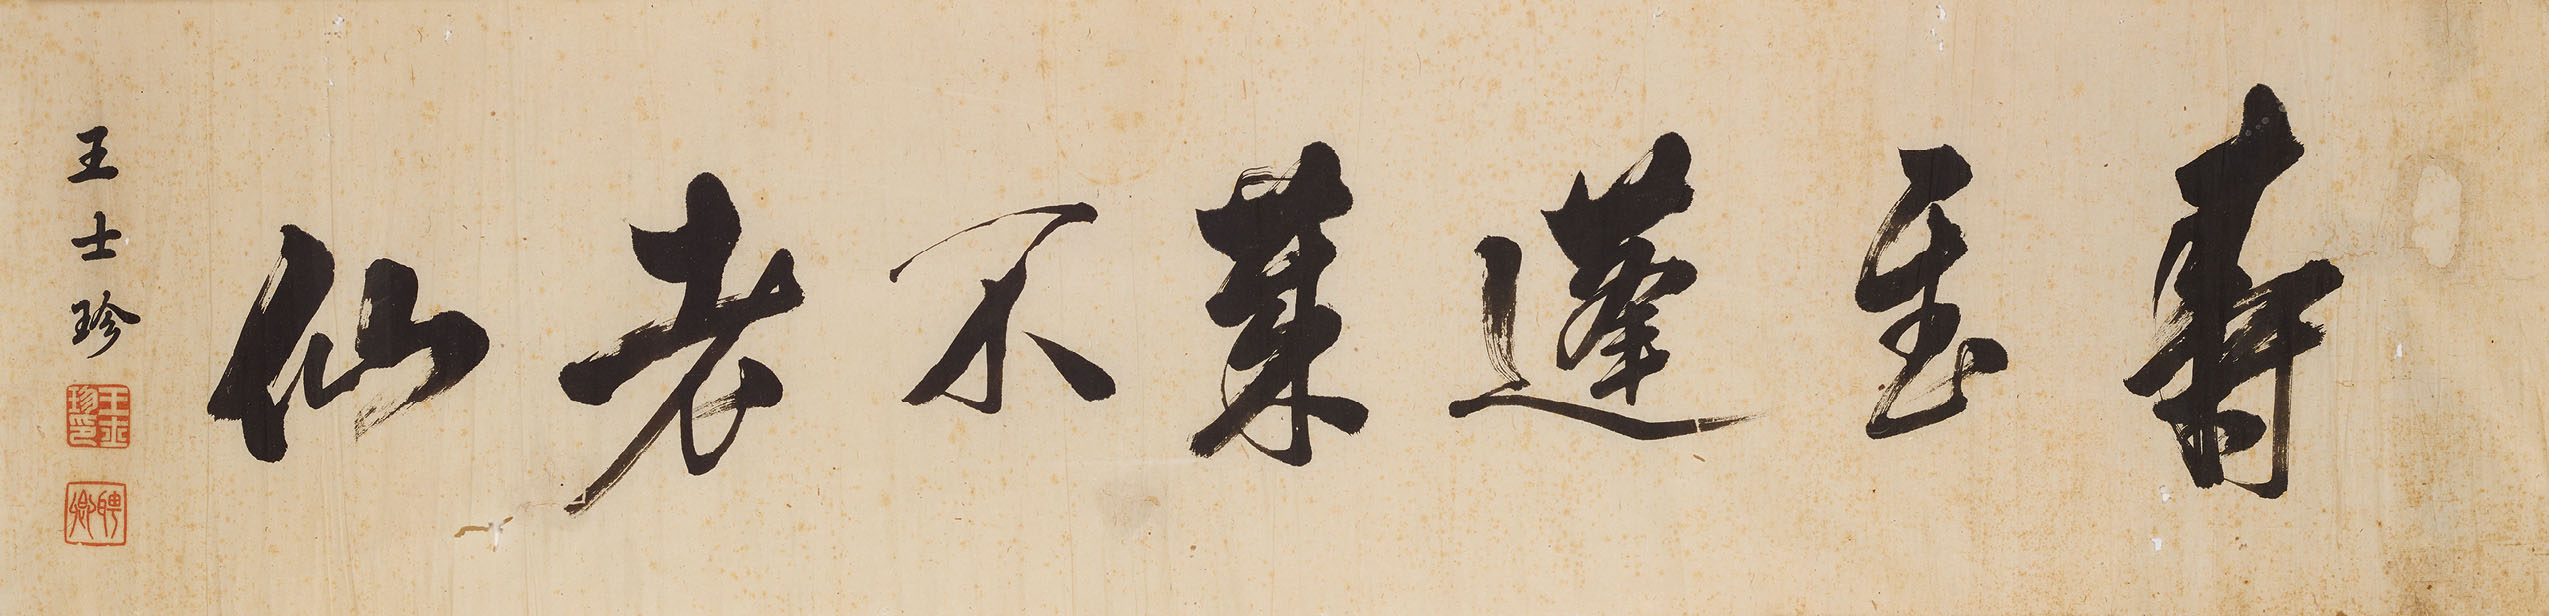 寿至蓬莱不老仙
王士珍
王士珍印
聘卿